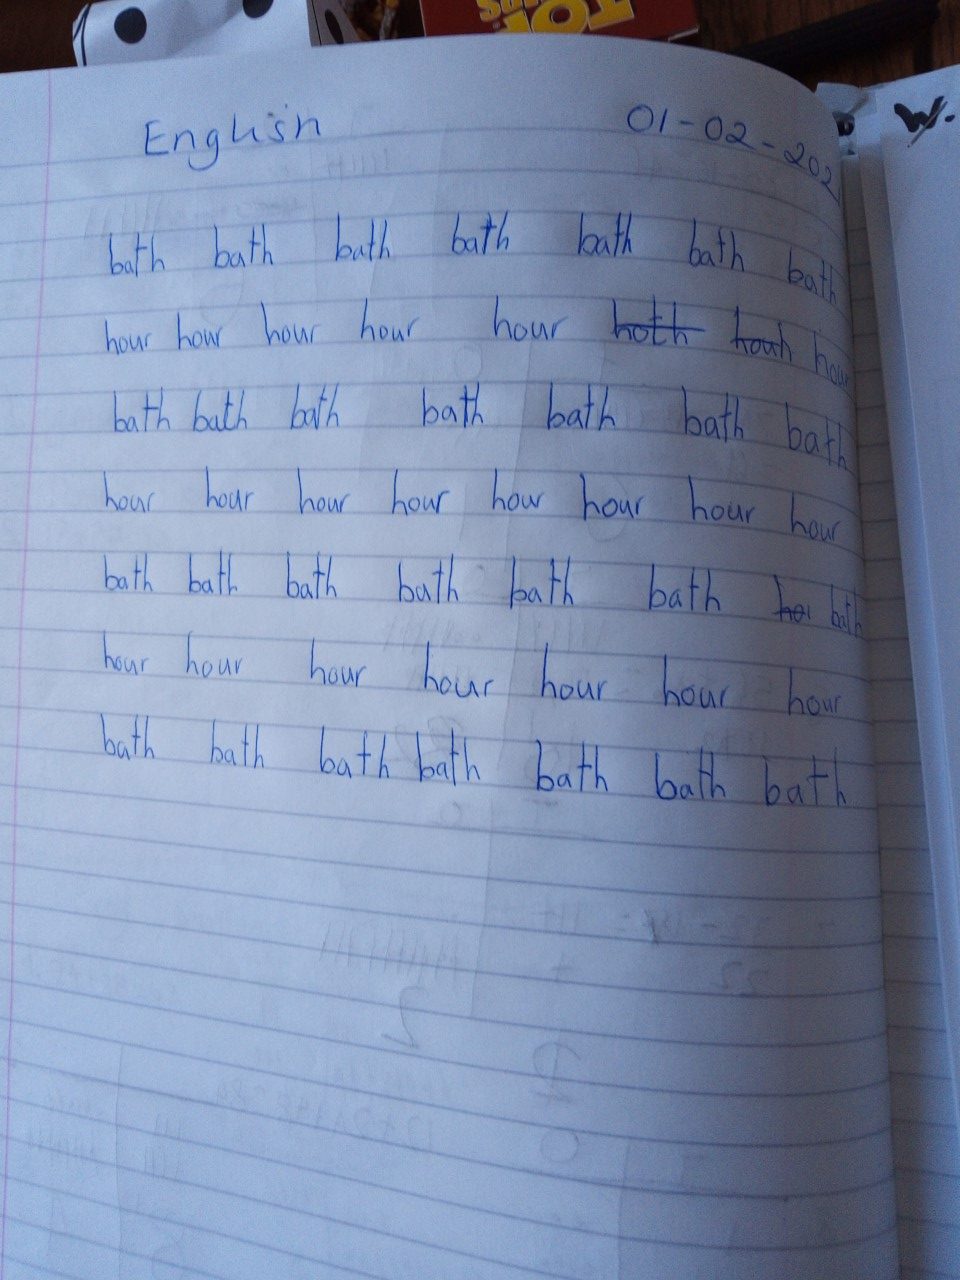 English 01-02-202
bath bath bath bath bath bath bath
hour hour hour hour hour hoth houh hour
bath bath bath bath bath bath bath
hour hour hour hour hour hour hour hour
bath bath bath bath bath bath hou bath
hour hour hour hour hour hour hour
bath bath bath bath bath bath bath
W.